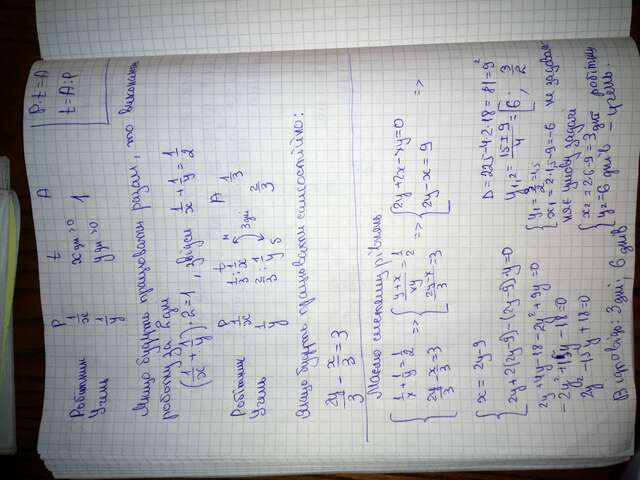 P·t=A
t=A:P
P t A
Робітник 1/x x дн >0 1
Учень 1/y y дн >0
Якщо будуть працювати разом, то виконають
роботу за 2 дні
(1/x + 1/y)·2=1, звідси 1/x + 1/y = 1/2
P t A
Робітник 1/x 1/3 : 1/x 1/3
Учень 1/y 2/3 : 1/y 2/3
3 дні
Якщо будуть працювати самостійно:
2y/3 - x/3 = 3
Маємо систему рівнянь
{ 1/x + 1/y = 1/2 => { (y+x)/xy = 1/2 => { 2y+2x-xy=0 =>
{ 2y/3 - x/3 = 3 { (2y-x)/3 = 3 { 2y-x=9
{ x = 2y-9
{ 2y+2(2y-9)-(2y-9)·y=0
2y+4y-18-2y²+9y=0
-2y²+15y-18=0
2y²-15y+18=0
D=225-4·2·18=81=9²
y₁,₂ = (15±9)/4 = [6; 3/2
{ y₁ = 3/2 = 1,5
{ x₁ = 2·1,5-9=-6 не задоволь
няє умову задачі
{ x₂ = 2·6-9=3 дні робітник
{ y₂=6 днів - учень.
Відповідь: 3 дні, 6 днів